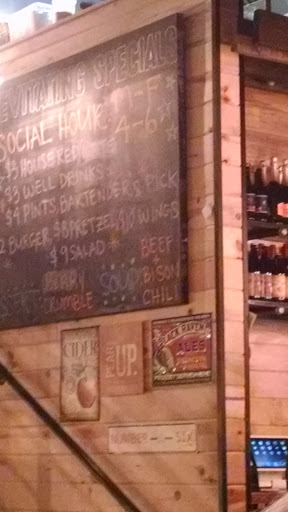 EVITATING SPECIALS
SOCIAL HOUR M-F
4-6
$5 HOUSE RED
$3 WELL DRINKS
$4 PINTS BARTENDER'S PICK
2 BURGER $8 PRETZEL $10 WINGS
$9 SALAD
BERRY CRUMBLE
SOUP
BEEF + BISON CHILI
CIDER
UP.
BLACK RAVEN
ALES
NUMBER -- SIX